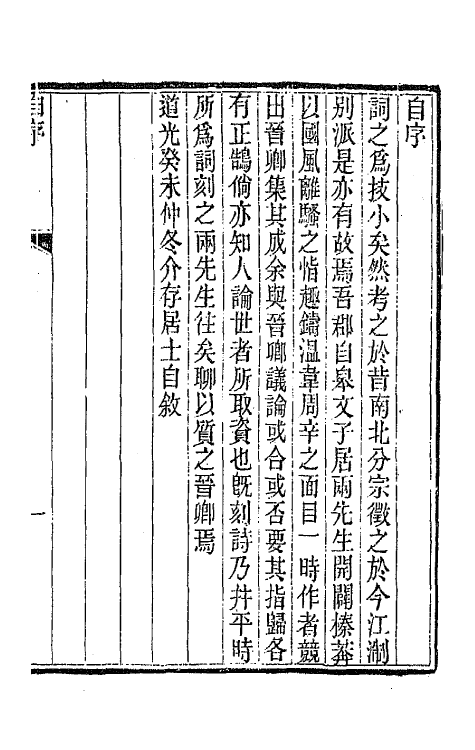 自序
詞之爲技小矣然考之於昔南北分宗徵之於今江浙
別派是亦有故焉吾郡自皋文子居兩先生開闢榛莽
以國風離騷之恉趣鑄溫韋周辛之面目一時作者競
出晉卿集其成余與晉卿議論或合或否要其指歸各
有正鵠倘亦知人論世者所取資也旣刻詩乃幷平時
所爲詞刻之兩先生往矣聊以質之晉卿焉
道光癸未仲冬介存居士自敘
自序
一